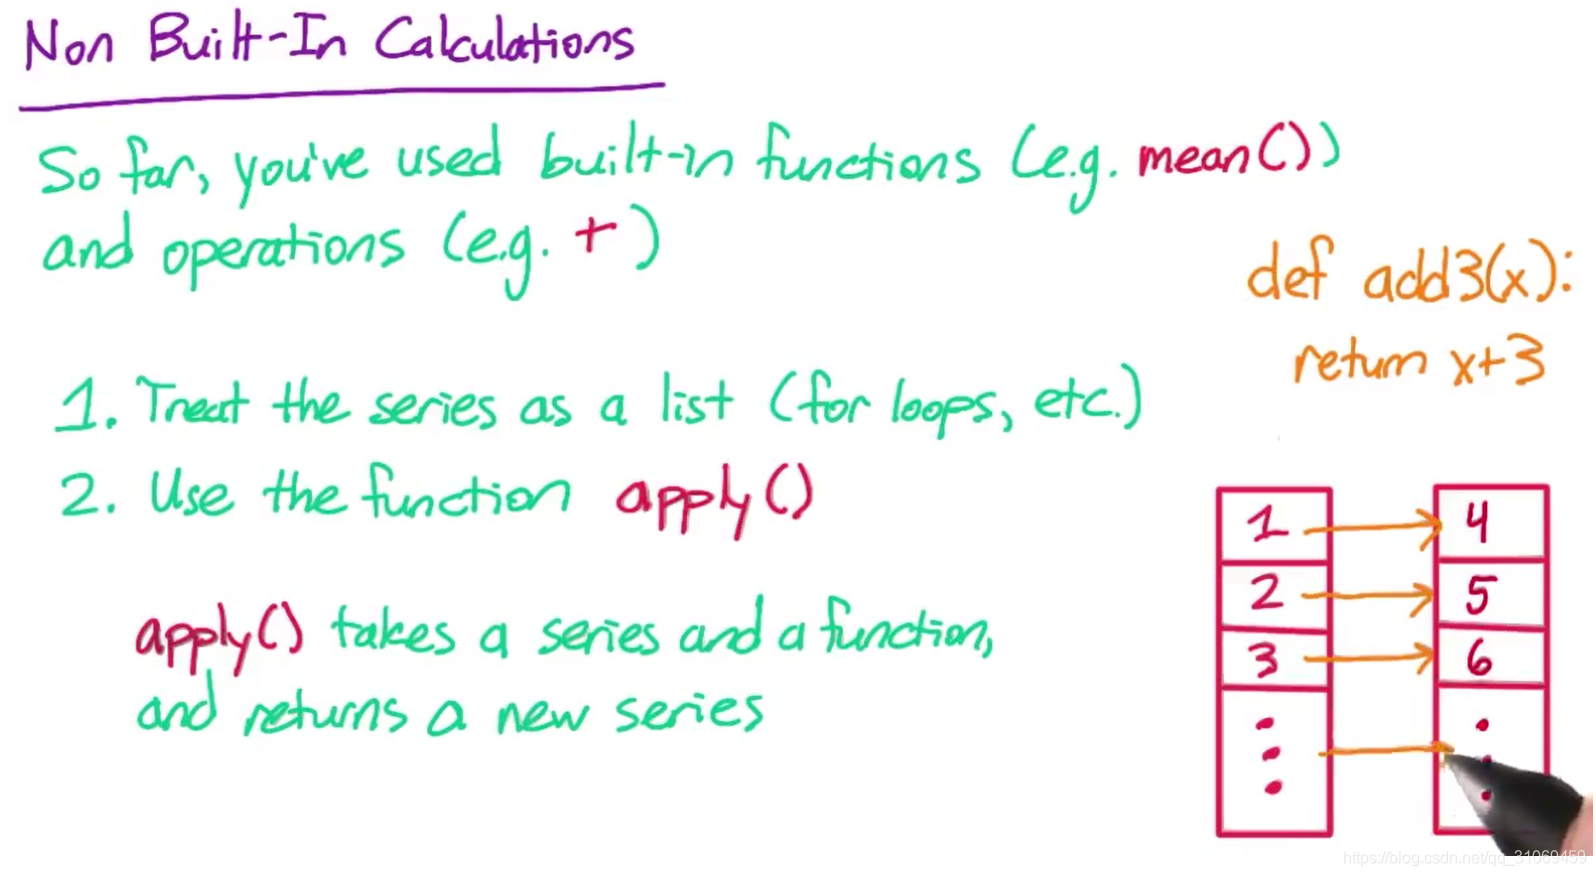 Non Built-In Calculations
So far, you've used built-in functions (e.g. mean())
and operations (e.g. +)
def add3(x):
return x+3
1. Treat the series as a list (for loops, etc.)
2. Use the function apply()
1 4
2 5
3 6
apply() takes a series and a function,
and returns a new series
https://blog.csdn.net/qq_31069459